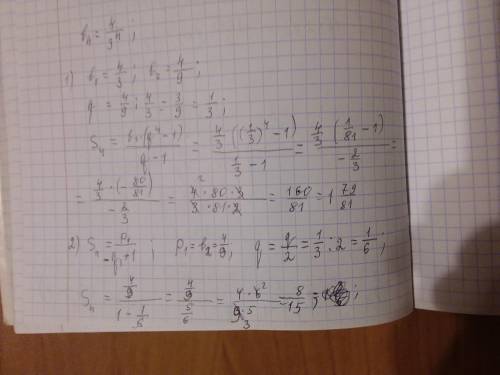 bₙ = 4/3ⁿ ;
1) b₁ = 4/3 ; b₂ = 4/9 ;
q = 4/9 : 4/3 = 3/9 = 1/3 ;
S₄ = b₁(q⁴-1)/(q-1) = 4/3((1/3)⁴-1)/(1/3-1) = 4/3(1/81-1)/(-2/3) =
= 4/3·(-80/81)/(-2/3) = 4·80·3/(3·81·2) = 160/81 = 1 79/81
2) Sₙ = P₁/(-q₁+1) ; P₁ = b₂ = 4/9 ; q = q/2 = 1/3 : 2 = 1/6 ;
Sₙ = (4/9)/(1-1/6) = (4/9)/(5/6) = 4·6²/(9·5) 3 = 8/15 ;